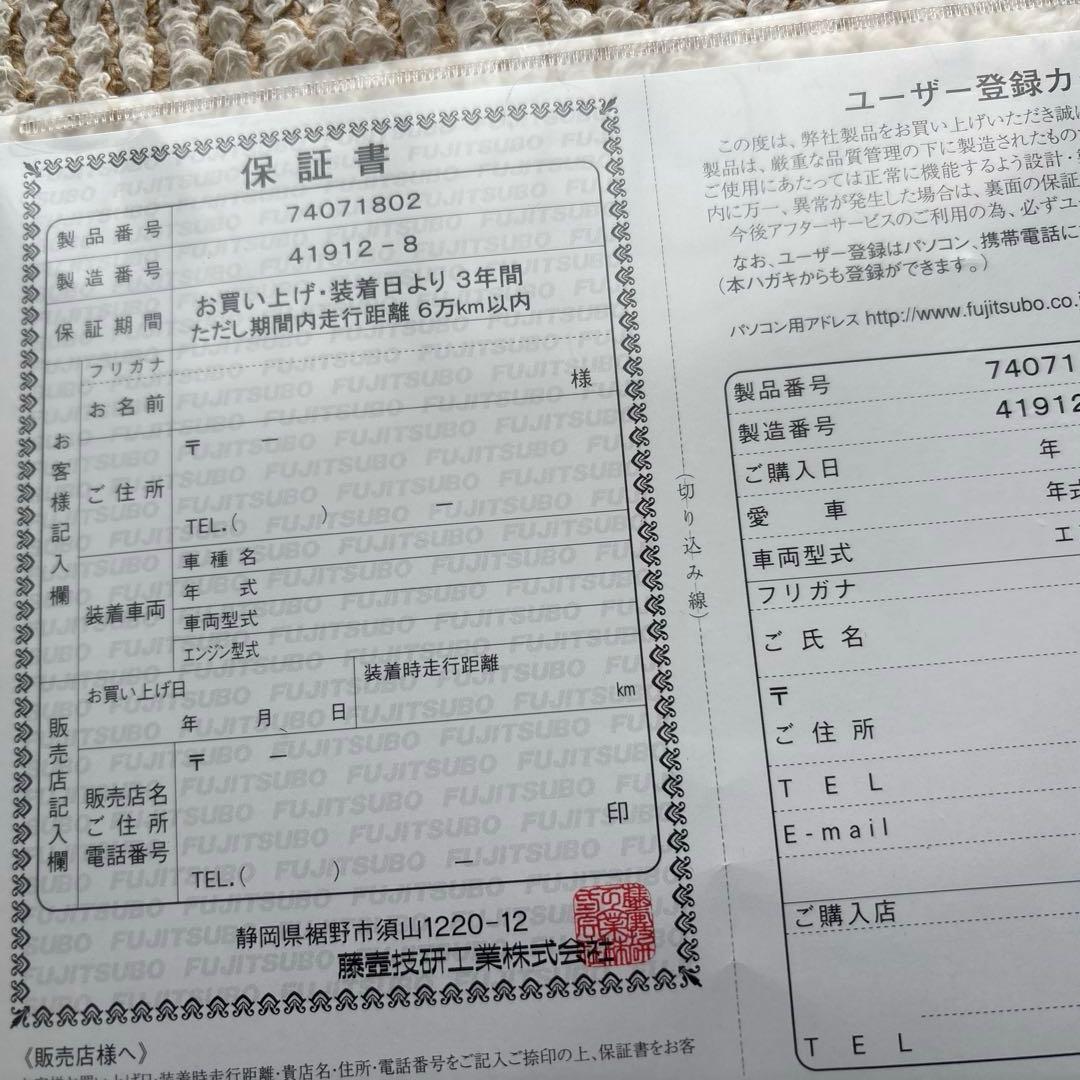 保証書
製品番号 74071802
製造番号 41912-8
保証期間 お買い上げ・装着日より 3年間
ただし期間内走行距離 6万km以内
お客様記入欄
フリガナ
お名前 様
ご住所 〒 ー
TEL.( ) ー
装着車両
車種名
年 式
車両型式
エンジン型式
販売店記入欄
お買い上げ日
年 月 日
装着時走行距離
km
販売店名
ご住所
電話番号
〒 ー
印
TEL.( ) ー
静岡県裾野市須山1220-12
藤壺技研工業株式会社
《販売店様へ》
お買い上げ日・装着時走行距離・貴店名・住所・電話番号をご記入ご捺印の上、保証書をお客
FUJITSUBO
(切り込み線)
ユーザー登録カ
この度は、弊社製品をお買い上げいただき誠に
製品は、厳重な品質管理の下に製造されたもの
ご使用にあたっては正常に機能するよう設計・
内に万一、異常が発生した場合は、裏面の保証
今後アフターサービスのご利用の為、必ずユー
なお、ユーザー登録はパソコン、携帯電話に
(本ハガキからも登録ができます。)
パソコン用アドレス http://www.fujitsubo.co.
製品番号 74071
製造番号 41912
ご購入日 年
愛 車 年式
車両型式 エ
フリガナ
ご氏名
〒
ご住所
TEL
E-mail
ご購入店
TEL